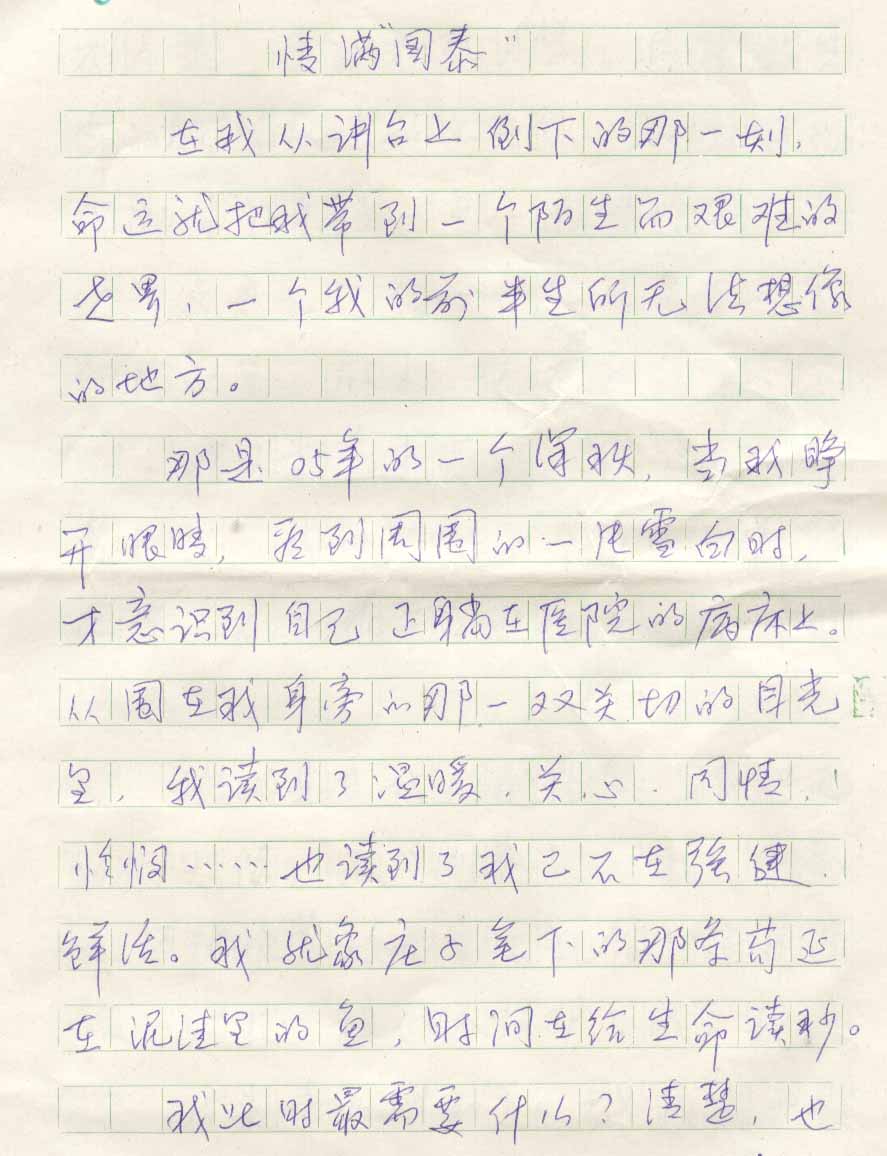 情满“国泰”
在我从讲台上倒下的那一刻，
命运就把我带到一个陌生而艰难的
世界，一个我的前半生所无法想像
的地方。
那是05年的一个深秋，当我睁
开眼睛，看到周围的一片雪白时，
才意识到自己正躺在医院的病床上。
从围在我身旁的那一双关切的目光
里，我读到了温暖、关心、同情、
怜悯……也读到了我已不在强健、
鲜活。我就象庄子笔下的那条苟延
在泥洼里的鱼，时间在给生命读秒。
我此时最需要什么？清楚，也